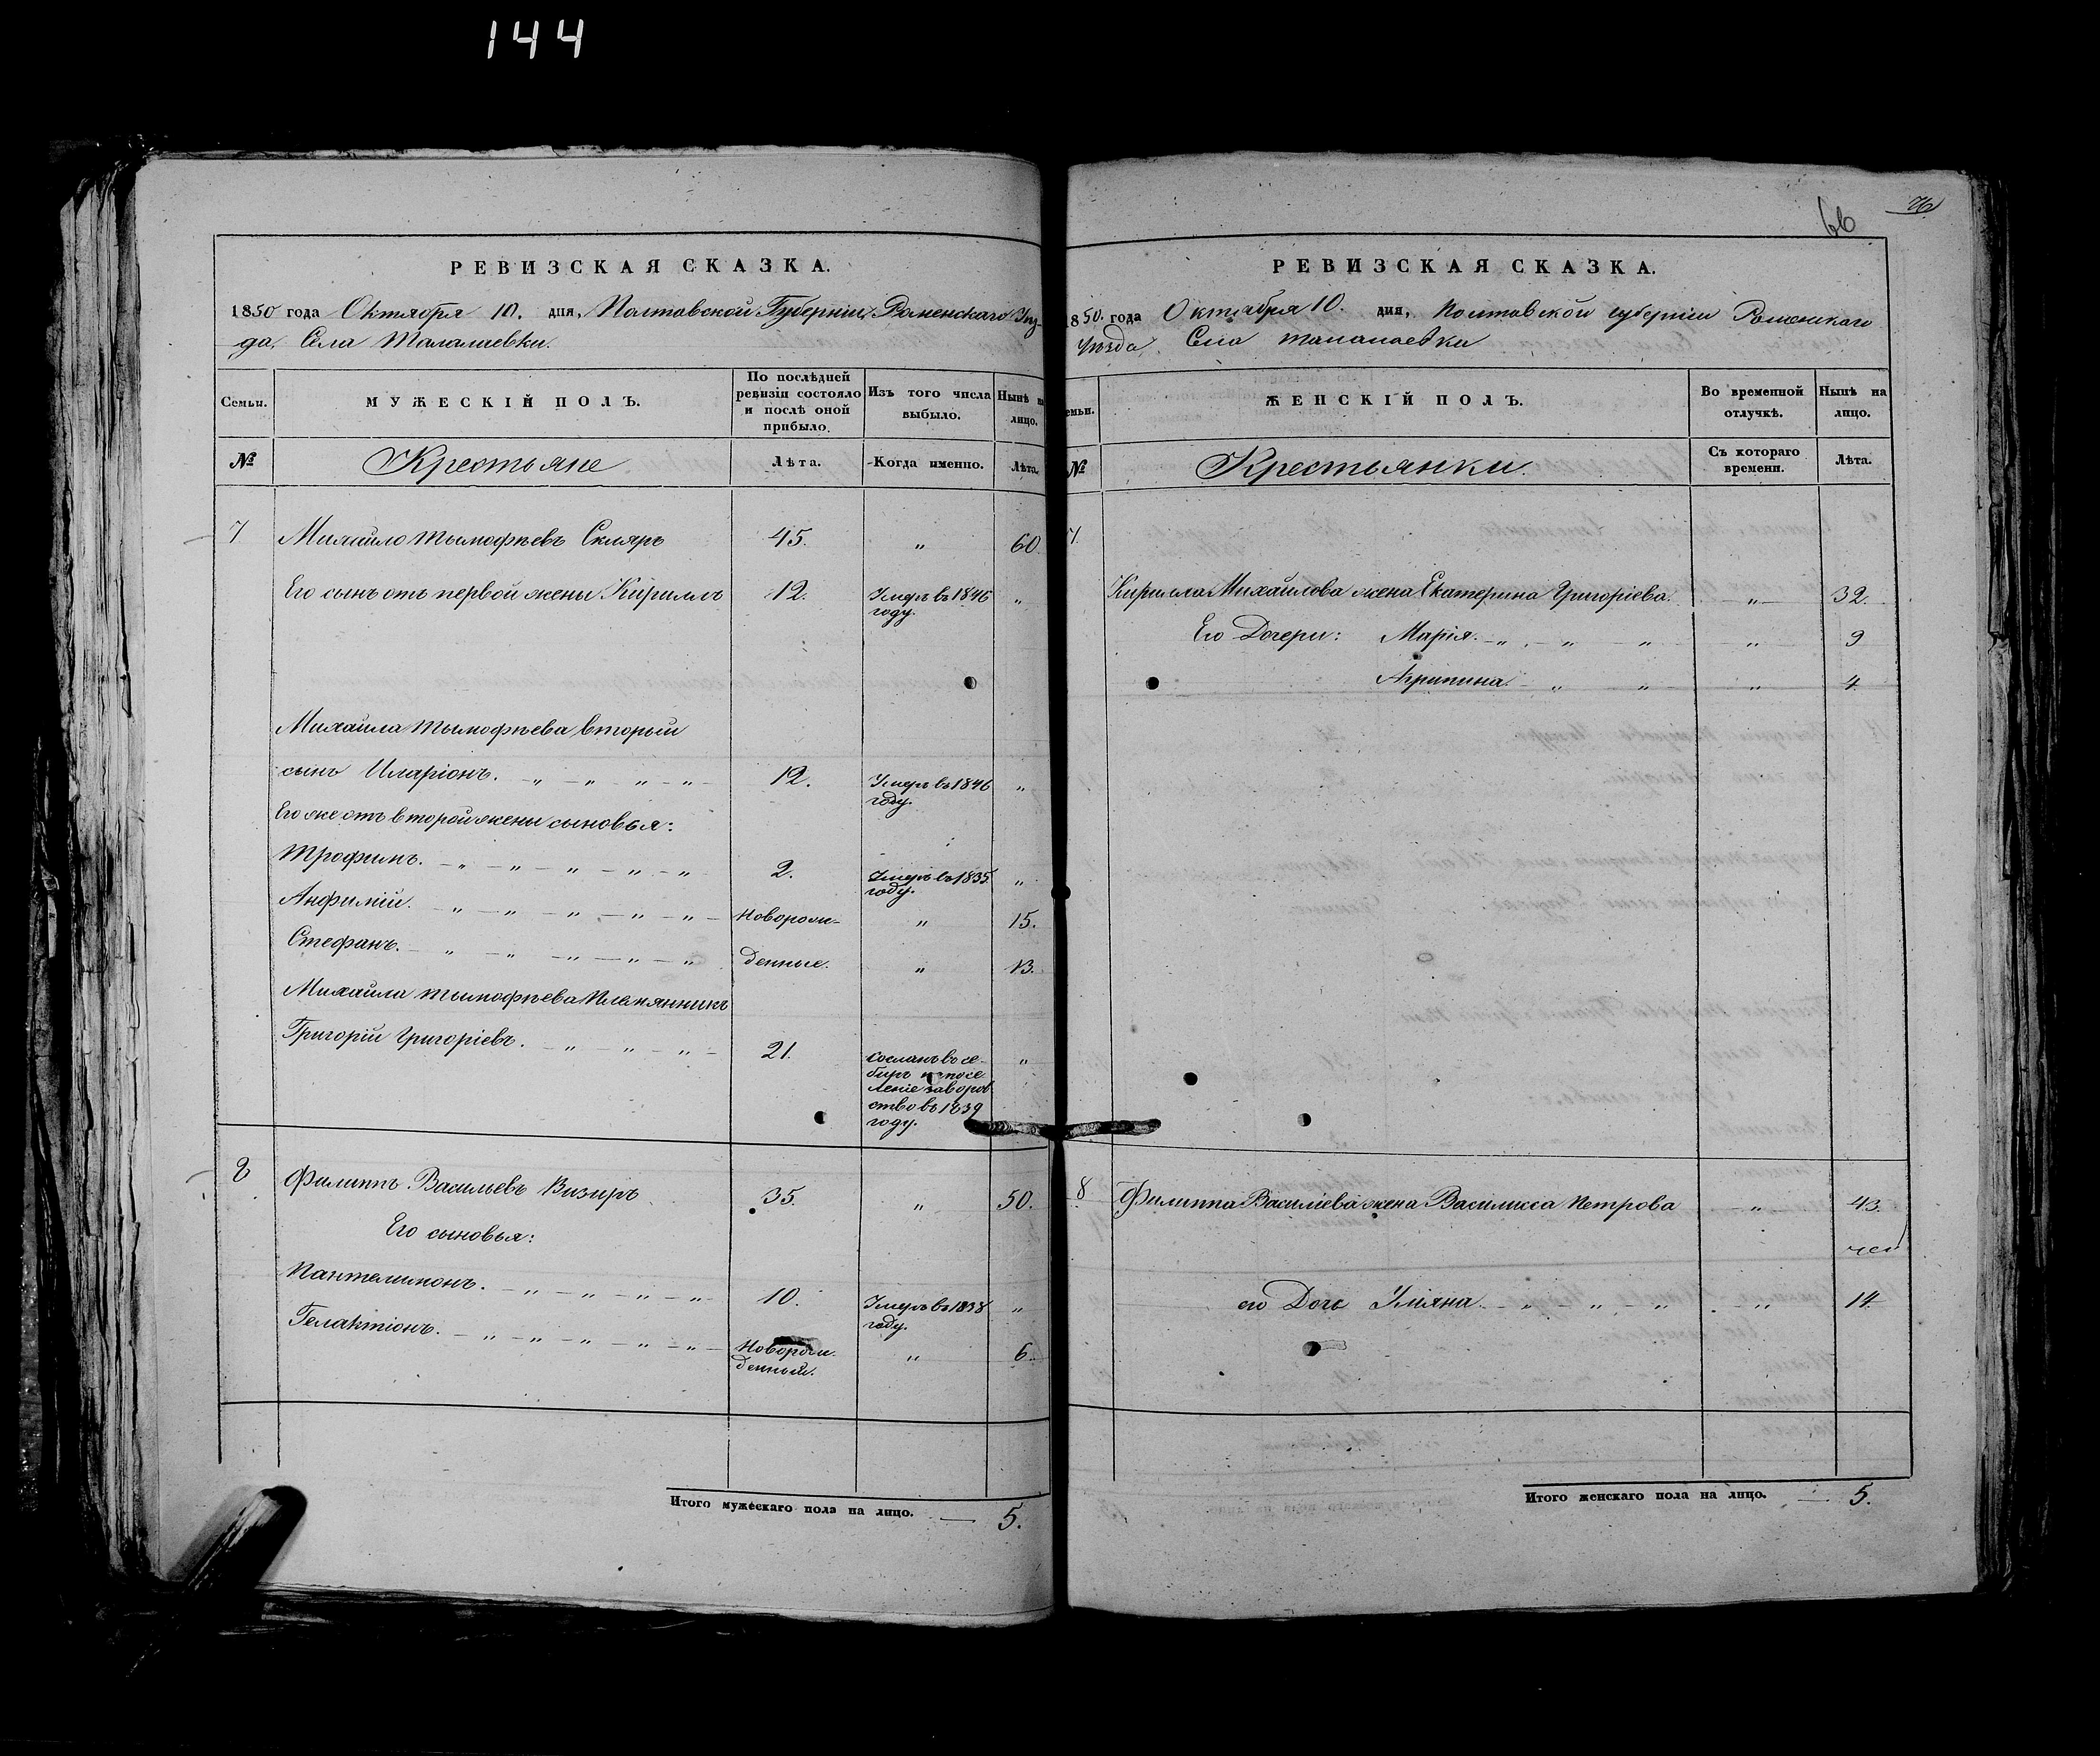 144
РЕВИЗСКАЯ СКАЗКА.
1850 года Октября 10. дня, Полтавской Губерніи, Роменскаго Уѣз-
да, Села Талалаевки.
Семьи.
МУЖЕСКІЙ ПОЛЪ.
По послѣдней ревизіи состояло и послѣ оной прибыло.
Изъ того числа выбыло.
Нынѣ на лицо.
№
Крестьяне
Лѣта.
Когда именно.
Лѣта.
7 Михайло Тымофѣевъ Скляръ 45. " 60.
Его сынъ отъ первой жены Кириллъ 12. Умеръ въ 1846 "
году.
Михаила Тымофѣева вторый
сынъ Иларіонъ. - " - " - " - " - 12. Умеръ въ 1846 "
году.
Его же отъ второй жены сыновья:
Трофимъ. - " - " - " - " - " 2. Умеръ въ 1835 "
году.
Анфилій. - " - " - " - " - " - Новорож- " 15.
Стефанъ. - " - " - " - " - " денные. " 13.
Михаила Тымофѣева племянникъ
Григорій Григоріевъ. - " - " - " - 21. сосланъ въ Се- "
биръ на посе-
леніе за воров
ство въ 1839
году.
8 Филиппъ Васильевъ Визиръ 35. " 50.
Его сыновья:
Пантелимонъ. - " - " - " - " - 10. Умеръ въ 1838 "
году.
Гелактіонъ. - " - " - " - " - " - Новорож- " 6.
денный.
Итого мужескаго пола на лицо. — 5.
66 76
РЕВИЗСКАЯ СКАЗКА.
1850. года Октября 10. дня, Полтавской губерніи Роменскаго
Уѣзда, Села Талалаевки
Семьи.
ЖЕНСКІЙ ПОЛЪ.
Во временной отлучкѣ.
Нынѣ на лицо.
№
Крестьянки.
Съ котораго времени.
Лѣта.
7.
Кирилла Михайлова жена Екатерина Григоріева. " 32.
Его Дочери: Марія. - " - " - " " 9
Агрипина. - " - " - " 4
8 Филиппа Василіева жена Василисса Петрова - " - 43.
его Дочь Уліяна. - " - " - " - " 14.
Итого женскаго пола на лицо. — 5.